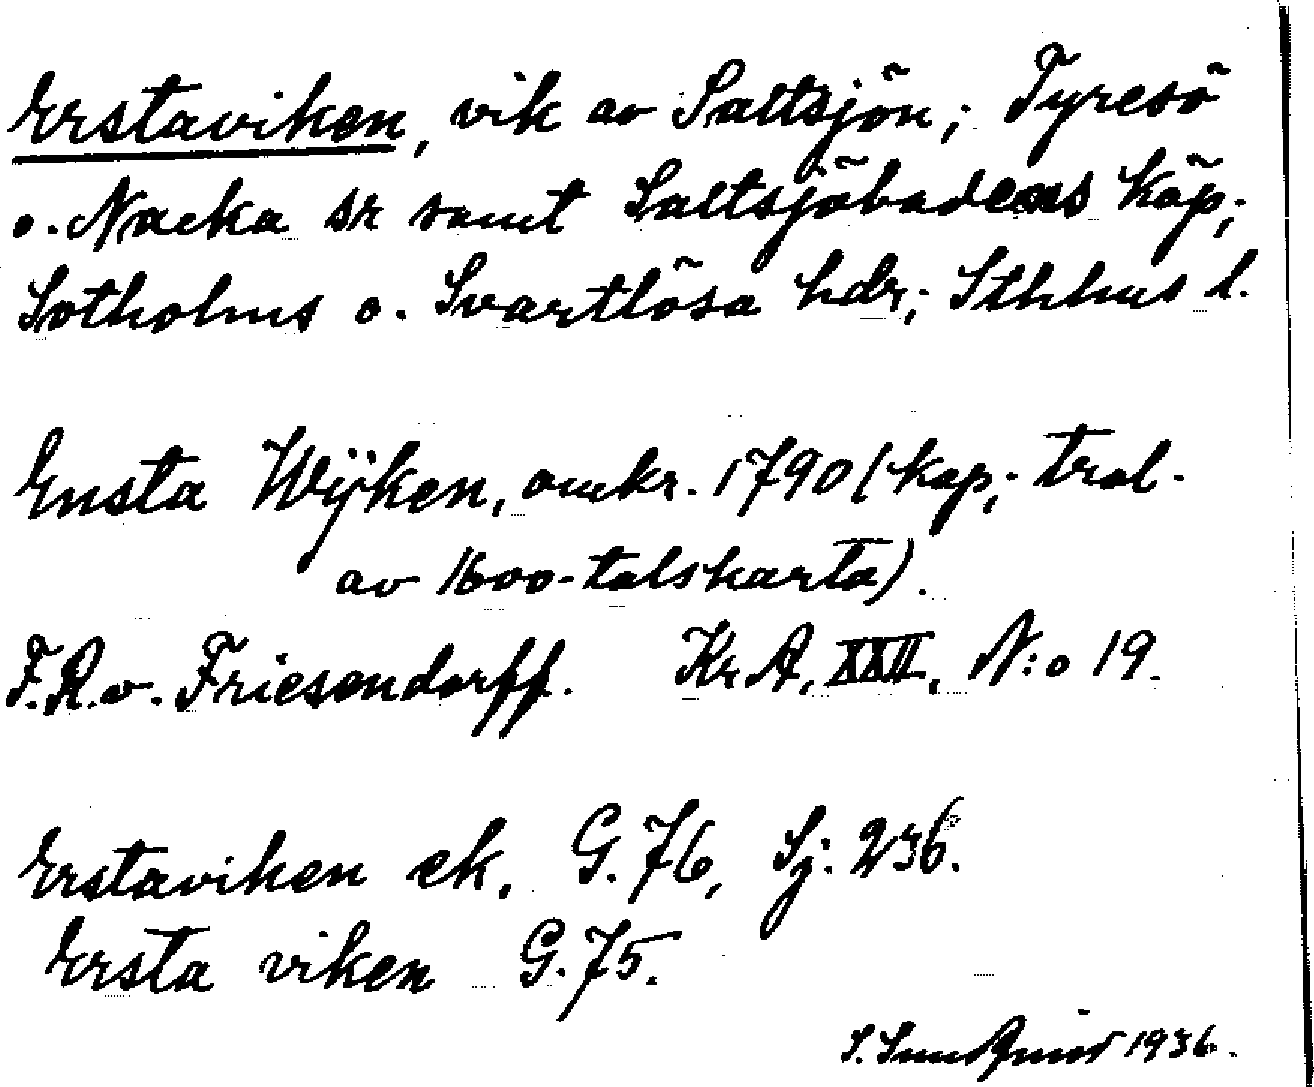 Erstaviken, vik av Saltsjön; Tyresö
o. Nacka sr samt Saltsjöbadens köp;
Sotholms o. Svartlösa hdr; Sthlms l.
Ensta Wÿken, omkr. 1790 (kop; trol.
av 1600-talskarta).
F.R.v. Friesendorff. Kr.A, XXII, N:o 19.
Erstaviken ek. G.76, Sj: 236.
Ersta viken G.75.
S. 1936.